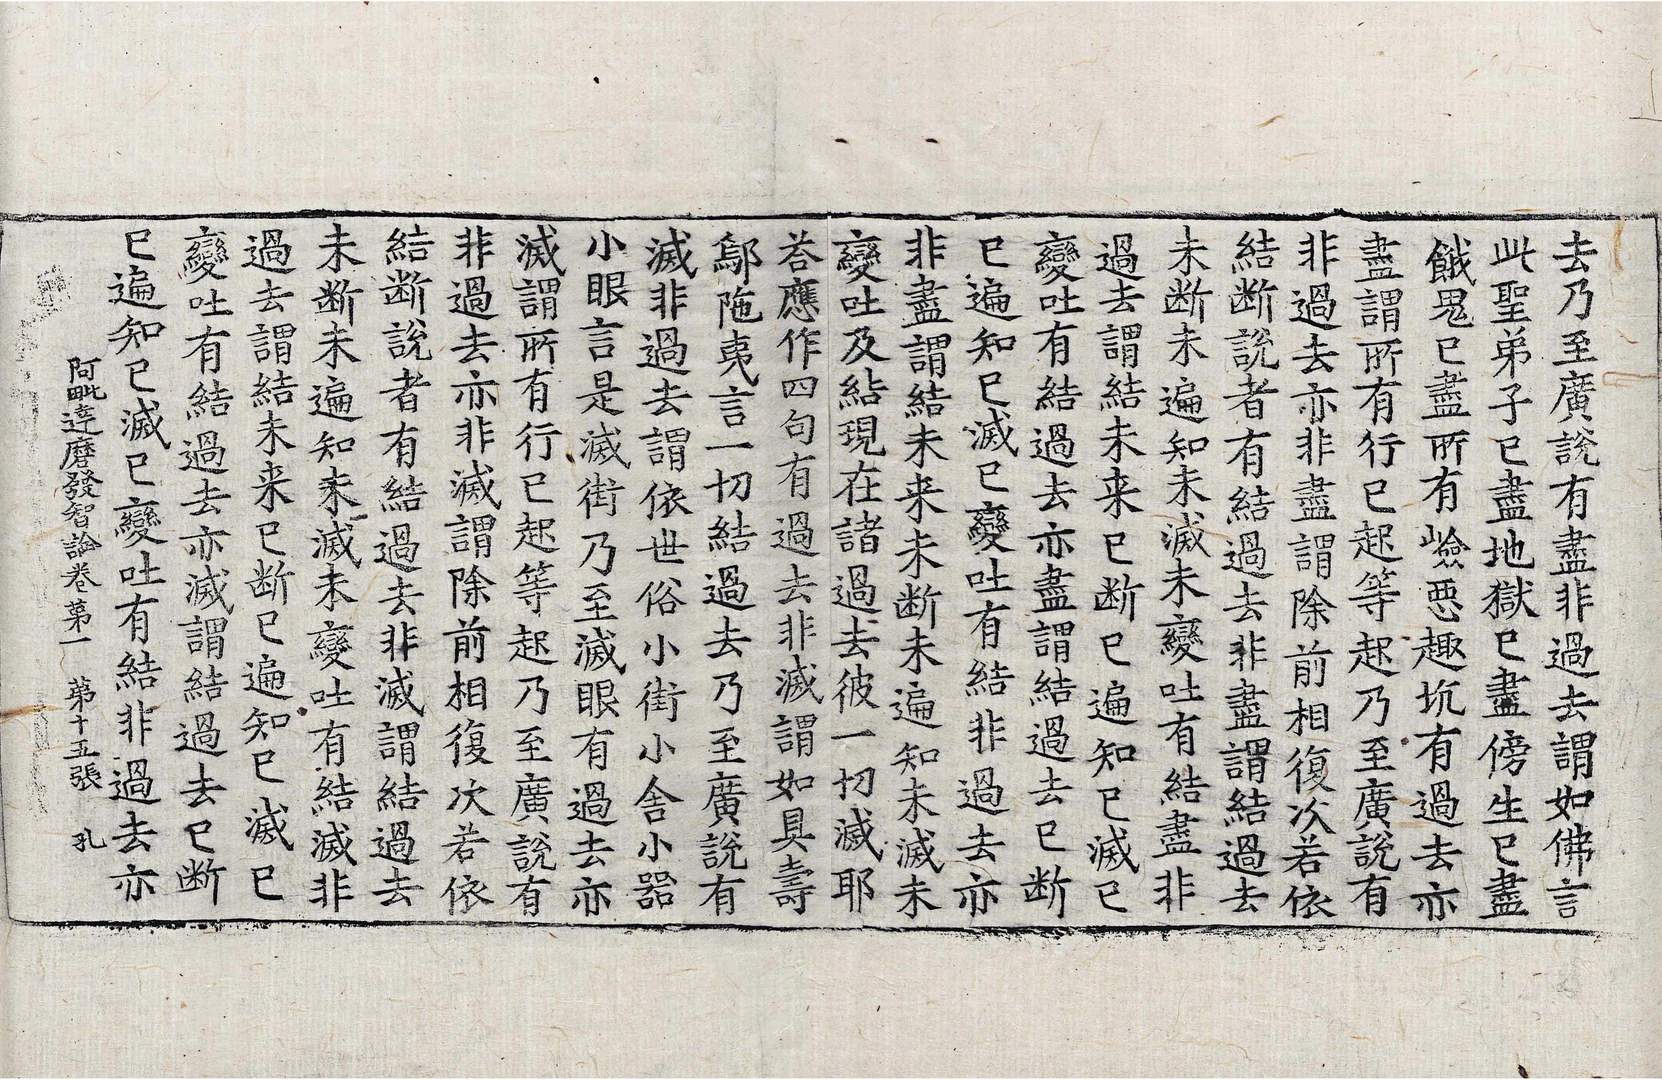 去乃至廣說有盡非過去謂如佛言
此聖弟子已盡地獄已盡傍生已盡
餓鬼已盡所有嶮惡趣坑有過去亦
盡謂所有行已起等起乃至廣說有
非過去亦非盡謂除前相復次若依
結断說者有結過去非盡謂結過去
未断未遍知未滅未變吐有結盡非
過去謂結未来已断已遍知已滅已
變吐有結過去亦盡謂結過去已断
已遍知已滅已變吐有結非過去亦
非盡謂結未来未断未遍知未滅未
變吐及結現在諸過去彼一切滅耶
荅應作四句有過去非滅謂如具壽
鄔陁夷言一切結過去乃至廣說有
滅非過去謂依世俗小街小舍小器
小眼言是滅街乃至滅眼有過去亦
滅謂所有行已起等起乃至廣說有
非過去亦非滅謂除前相復次若依
結断說者有結過去非滅謂結過去
未断未遍知未滅未變吐有結滅非
過去謂結未来已断已遍知已滅已
變吐有結過去亦滅謂結過去已断
已遍知已滅已變吐有結非過去亦
阿毗達磨發智論卷第一 第十五張 孔